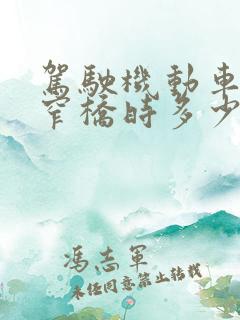 駕駛機動車
窄橋時多少
馮志軍
未經同意禁止轉載